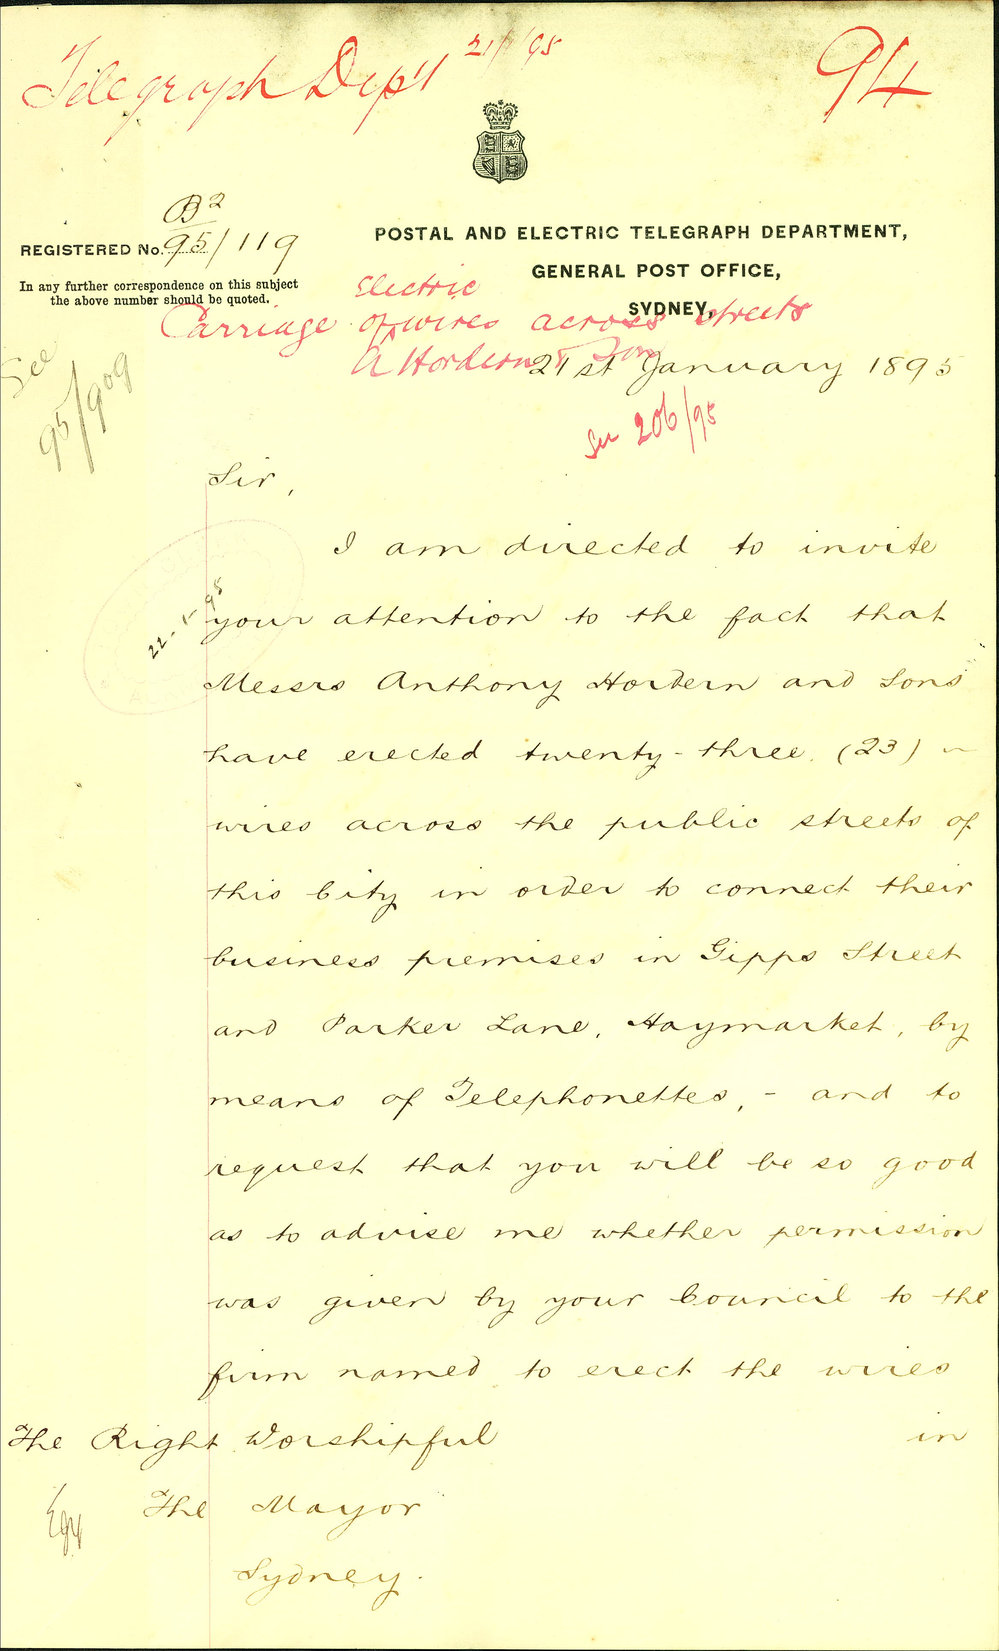 Telegraph Dept 21/1/95
94
B2
REGISTERED No. 95/119
In any further correspondence on this subject
the above number should be quoted.
POSTAL AND ELECTRIC TELEGRAPH DEPARTMENT,
GENERAL POST OFFICE,
SYDNEY,
Electric
Carriage of wires across streets
A Hordern & Son
21st January 1895
See
95/909
See 206/95
Sir,
I am directed to invite
22-1-95
your attention to the fact that
Messrs Anthony Hordern and Sons
have erected twenty-three (23)
wires across the public streets of
this City in order to connect their
business premises in Gipps Street
and Parker Lane, Haymarket, by
means of Telephonettes, - and to
request that you will be so good
as to advise me whether permission
was given by your Council to the
firm named to erect the wires
in
The Right Worshipful
The Mayor
Sydney.